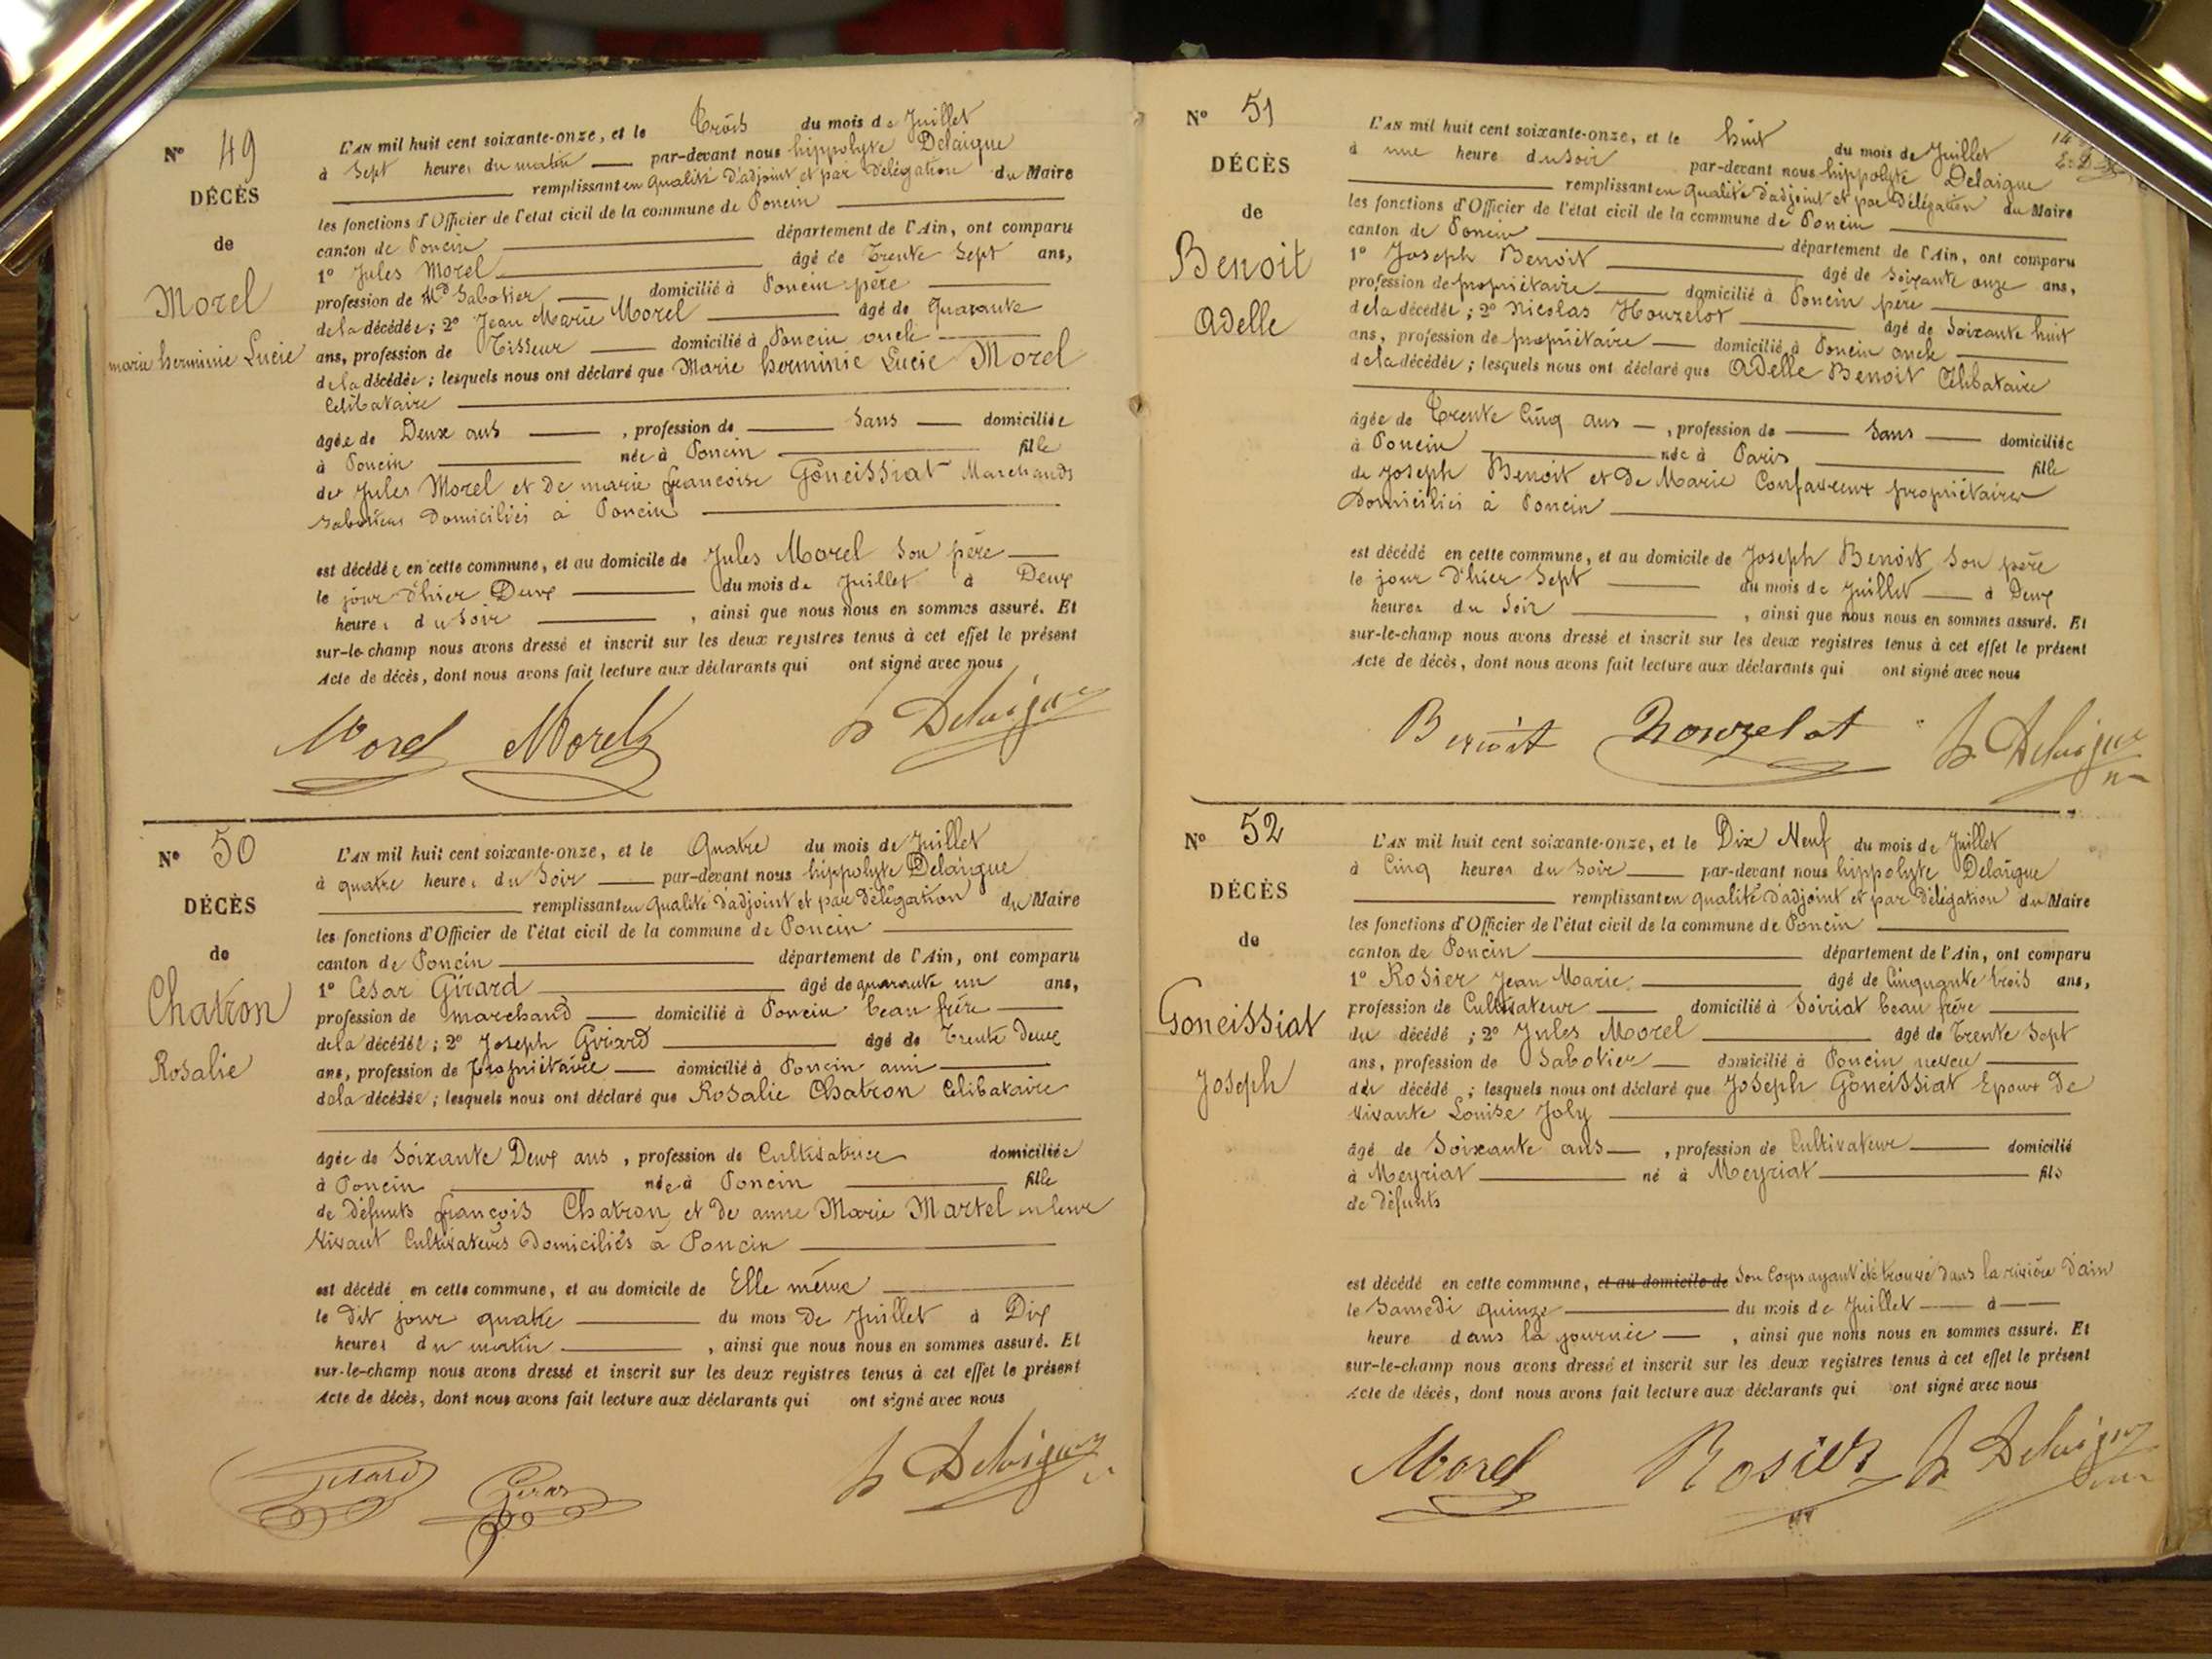 N° 49
DÉCÈS
de
Morel
marie herminie Lucie
L'AN mil huit cent soixante-onze, et le Trois du mois de Juillet
à Sept heures du matin par-devant nous hippolyte Delaigue
remplissant en qualité d'adjoint et par Délégation du Maire
les fonctions d'Officier de l'état civil de la commune de Poncin
canton de Poncin département de l'Ain, ont comparu
1° Jules Morel âgé de Trente Sept ans,
profession de Md Sabotier domicilié à Poncin père
de la décédée ; 2° Jean Marie Morel âgé de quarante
ans, profession de Tisseur domicilié à Poncin oncle
de la décédée ; lesquels nous ont déclaré que Marie herminie Lucie Morel
Celibataire
âgée de Deux ans , profession de Sans domiciliée
à Poncin née à Poncin fille
de Jules Morel et De marie francoise Goneissiat Marchands
Sabotiers Domiciliés à Poncin
est décédée en cette commune, et au domicile de Jules Morel Son père
le jour d'hier Deux du mois de Juillet à Deux
heures du Soir , ainsi que nous nous en sommes assuré. Et
sur-le-champ nous avons dressé et inscrit sur les deux registres tenus à cet effet le présent
Acte de décès, dont nous avons fait lecture aux déclarants qui ont signé avec nous
Morel Morel h Delaigue
N° 50
DÉCÈS
de
Chatron
Rosalie
L'AN mil huit cent soixante-onze, et le Quatre du mois de Juillet
à quatre heures du Soir par-devant nous hippolyte Delaigue
remplissant en qualité d'adjoint et par délégation du Maire
les fonctions d'Officier de l'état civil de la commune de Poncin
canton de Poncin département de l'Ain, ont comparu
1° Cesar Girard âgé de quarante un ans,
profession de marchand domicilié à Poncin beau frère
de la décédée ; 2° Joseph Girard âgé de Trente Deux
ans, profession de propriétaire domicilié à Poncin ami
de la décédée ; lesquels nous ont déclaré que Rosalie Chatron Celibataire
âgée de Soixante Deux ans , profession de Cultivatrice domiciliée
à Poncin née à Poncin fille
de Défunts françois Chatron et De anne Marie Martel en leur
Vivant Cultivateurs Domiciliés à Poncin
est décédé en cette commune, et au domicile de Elle même
le Dit jour quatre du mois De Juillet à Dix
heures du matin , ainsi que nous nous en sommes assuré. Et
sur-le-champ nous avons dressé et inscrit sur les deux registres tenus à cet effet le présent
Acte de décès, dont nous avons fait lecture aux déclarants qui ont signé avec nous
Girard Girard h Delaigue
N° 51
DÉCÈS
de
Benoit
Adelle
L'AN mil huit cent soixante-onze, et le huit du mois de Juillet
à une heure du Soir par-devant nous hippolyte Delaigue
remplissant en qualité d'adjoint et par Délégation du Maire
les fonctions d'Officier de l'état civil de la commune de Poncin
canton de Poncin département de l'Ain, ont comparu
1° Joseph Benoit âgé de Soixante onze ans,
profession de propriétaire domicilié à Poncin père
de la décédée ; 2° Nicolas Houzelot âgé de Soixante huit
ans, profession de propriétaire domicilié à Poncin oncle
de la décédée ; lesquels nous ont déclaré que Adelle Benoit Célibataire
âgée de Trente Cinq ans , profession de Sans domiciliée
à Poncin née à Paris fille
de Joseph Benoit et De Marie propriétaires
Domiciliés à Poncin
est décédé en cette commune, et au domicile de Joseph Benoit Son père
le jour d'hier Sept du mois de Juillet à Deux
heures du Soir , ainsi que nous nous en sommes assuré. Et
sur-le-champ nous avons dressé et inscrit sur les deux registres tenus à cet effet le présent
Acte de décès, dont nous avons fait lecture aux déclarants qui ont signé avec nous
Benoit houzelot h Delaigue
N° 52
DÉCÈS
de
Goneissiat
Joseph
L'AN mil huit cent soixante-onze, et le Dix Neuf du mois de Juillet
à Cinq heures du Soir par-devant nous hippolyte Delaigue
remplissant en qualité d'adjoint et par délégation du Maire
les fonctions d'Officier de l'état civil de la commune de Poncin
canton de Poncin département de l'Ain, ont comparu
1° Rosier Jean Marie âgé de Cinquante trois ans,
profession de Cultivateur domicilié à Soiriat beau frère
du décédé ; 2° Jules Morel âgé de Trente Sept
ans, profession de Sabotier domicilié à Poncin neveu
du décédé ; lesquels nous ont déclaré que Joseph Goneissiat Epoux De
Vivante Louise Joly
âgé de Soixante ans , profession de Cultivateur domicilié
à Meyriat né à Meyriat fils
de défunts
est décédé en cette commune, et au domicile de Son Corps ayant été trouvé dans la rivière d'ain
le Samedi quinze du mois de Juillet à
heure dans la journée , ainsi que nous nous en sommes assuré. Et
sur-le-champ nous avons dressé et inscrit sur les deux registres tenus à cet effet le présent
Acte de décès, dont nous avons fait lecture aux déclarants qui ont signé avec nous
Morel Rosier h Delaigue